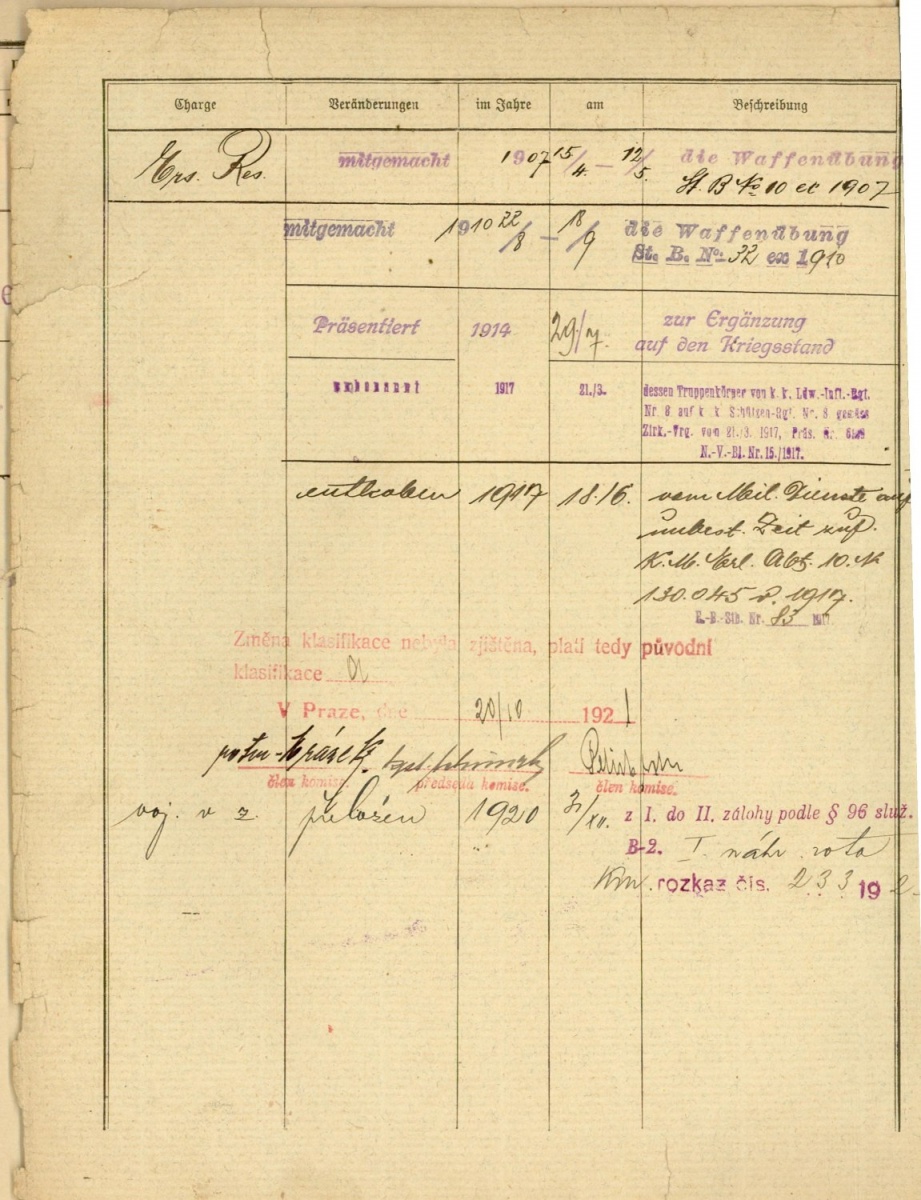 Charge Veränderungen im Jahre am Beschreibung
Ers. Res. mitgemacht 1907 15/4. – 12/5. die Waffenübung
St. B No 10 ex 1907
mitgemacht 1910 22/8 – 18/9 die Waffenübung
St. B. No: 32 ex 1910
Präsentiert 1914 29/7. zur Ergänzung
auf den Kriegsstand
umbenannt 1917 21./3. dessen Truppenkörper von k. k. Ldw.-Inft.-Rgt.
Nr. 8 auf k. k. Schützen-Rgt. Nr. 8 gemäss
Zirk.-Vrg. vom 21./3. 1917, Präs. Nr.
N.-V.-Bl. Nr. 15./1917.
enthoben 1917 18./6. vom Mil. Dienste auf
unbest. Zeit zuf.
K. M. Erl. Abt. 10. N
130.045 v. 1917.
E.-B.-Stb. Nr. 83 1917.
Změna klasifikace nebyla zjištěna, platí tedy původní
klasifikace a
V Praze, dne 20/10 1921
člen komise. předseda komise. člen komise.
voj. v z. přeložen 1920 31/XII. z I. do II. zálohy podle § 96 služ.
B-2. I. náhr. rota
Km. rozkaz čís. 233 192